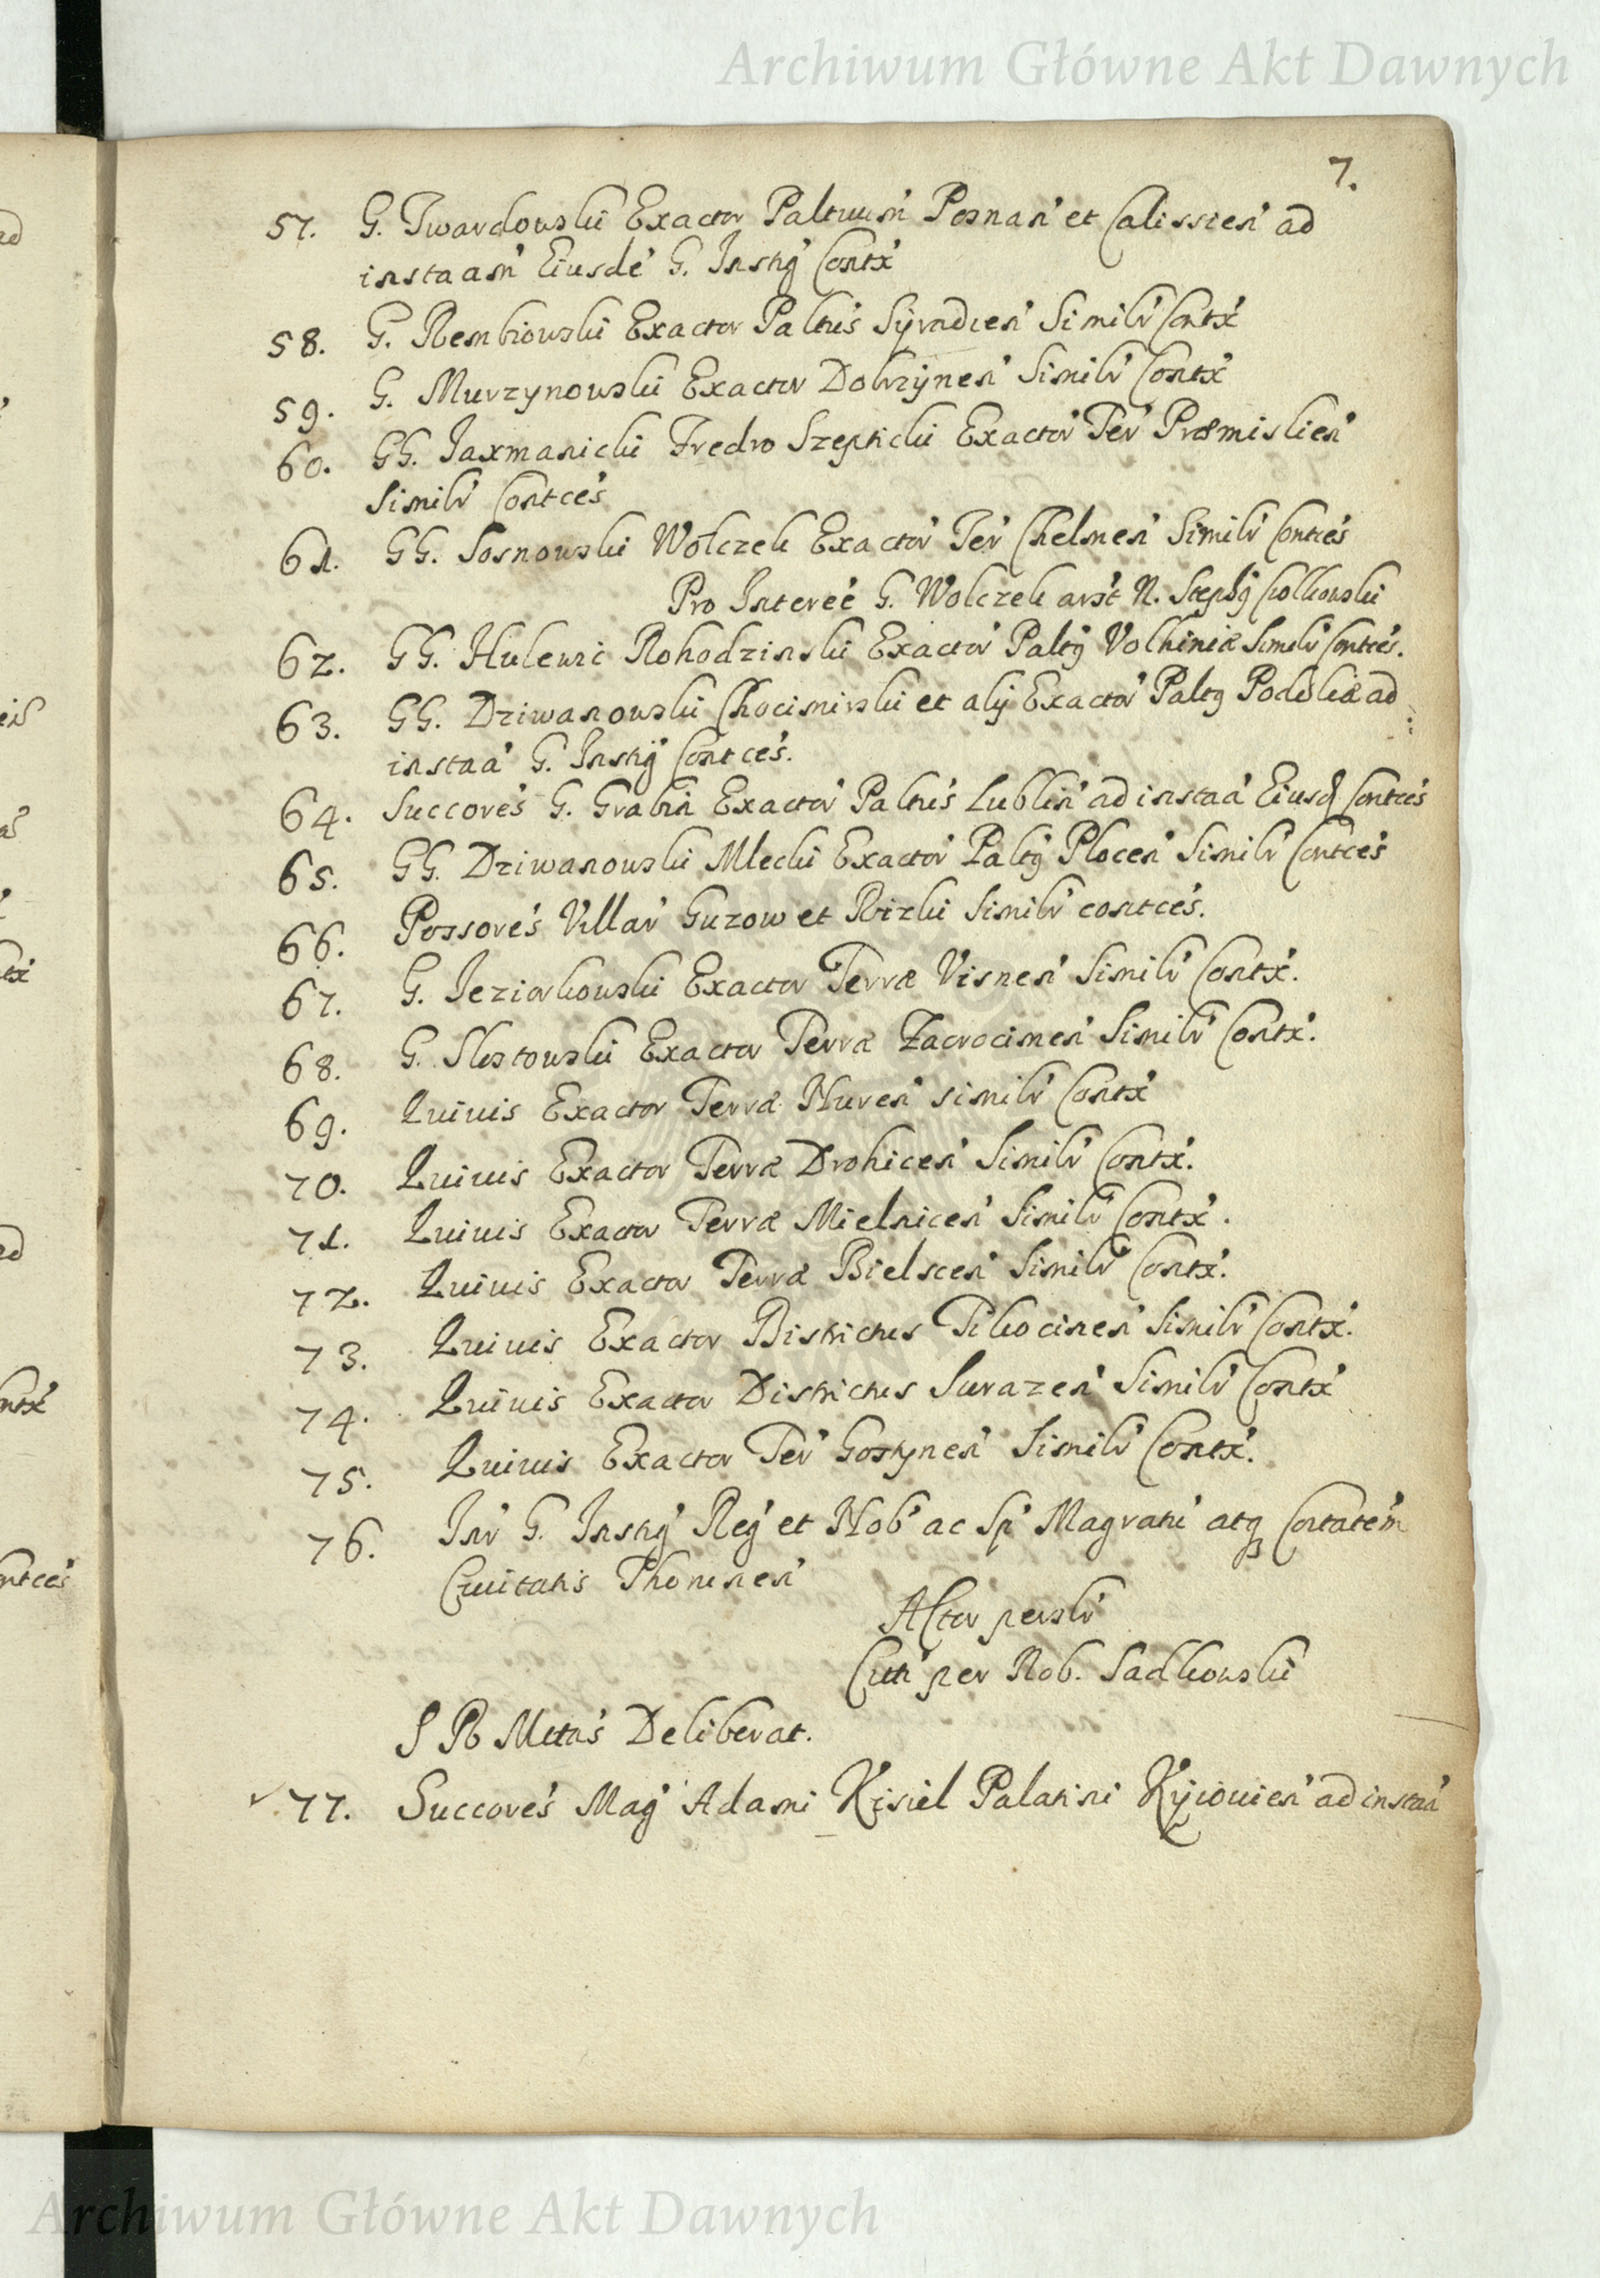 Archiwum Główne Akt Dawnych
7.
57. G. Twardowski Exactor Paltuum' Posnan' et Calissien' ad
instaam' Eiusde' G. Instig' Contx'
58. G. Rembiowski Exactor Paltus' Syradien' Similr' Contx'
59. G. Murzynowski Exactor Dobrzynen' Similr' Contx'
60. GG. Jaxmanicki Fredro Szepticki Exactor' Ter' Præmislien'
Similr' Contces'
61. GG. Sosnowski Wolczek Exactor' Ter' Chelmen' Similr' Contces'
Pro Interee' G. Wolczek N.
62. GG. Hulewic Rohodzinski Exactor' Paltg Volhiniæ Similr' Contces'.
63. GG. Dziwanowski Chocimirski et alij Exactor' Paltg Podoliæ ad
instaa' G. Instig' Contces'.
64. Succores' G. Grabin Exactor' Paltus' Lublin' ad instaa' Eiusd Contces'
65. GG. Dziwanowski Mlecki Exactor' Paltg Plocen' Similr' Contces'
66. Possores' Villar' Guzow et Rizki Similr' contces'.
67. G. Jeziorkowski Exactor Terræ Visnen' Similr' Contx'.
68. G. Exactor Terræ Zacrocimen' Similr' Contx'.
69. Quiuis Exactor Terræ Nuren' similr' Contx'
70. Quiuis Exactor Terræ Drohicen' Similr' Contx'.
71. Quiuis Exactor Terræ Mielnicen' Similr' Contx'.
72. Quiuis Exactor Terræ Bielscen' Similr' Contx'.
73. Quiuis Exactor Districtus Tikocinen' Similr' Contx'.
74. Quiuis Exactor Districtus Surazen' Similr' Contx'
75. Quiuis Exactor Ter' Gostynen' Similr' Contx'.
76. Inr' G. Instig' Reg' et Nob' ac Sp' Magratu' atq Cortatem'
Ciuitatis Thorunen'
Actor perslr'
Citti' per Nob. Sadkowski
S R Mttas' Deliberat.
77. Succores' Mag' Adami Kisiel Palatini Kijouien' ad instaa'
Archiwum Główne Akt Dawnych